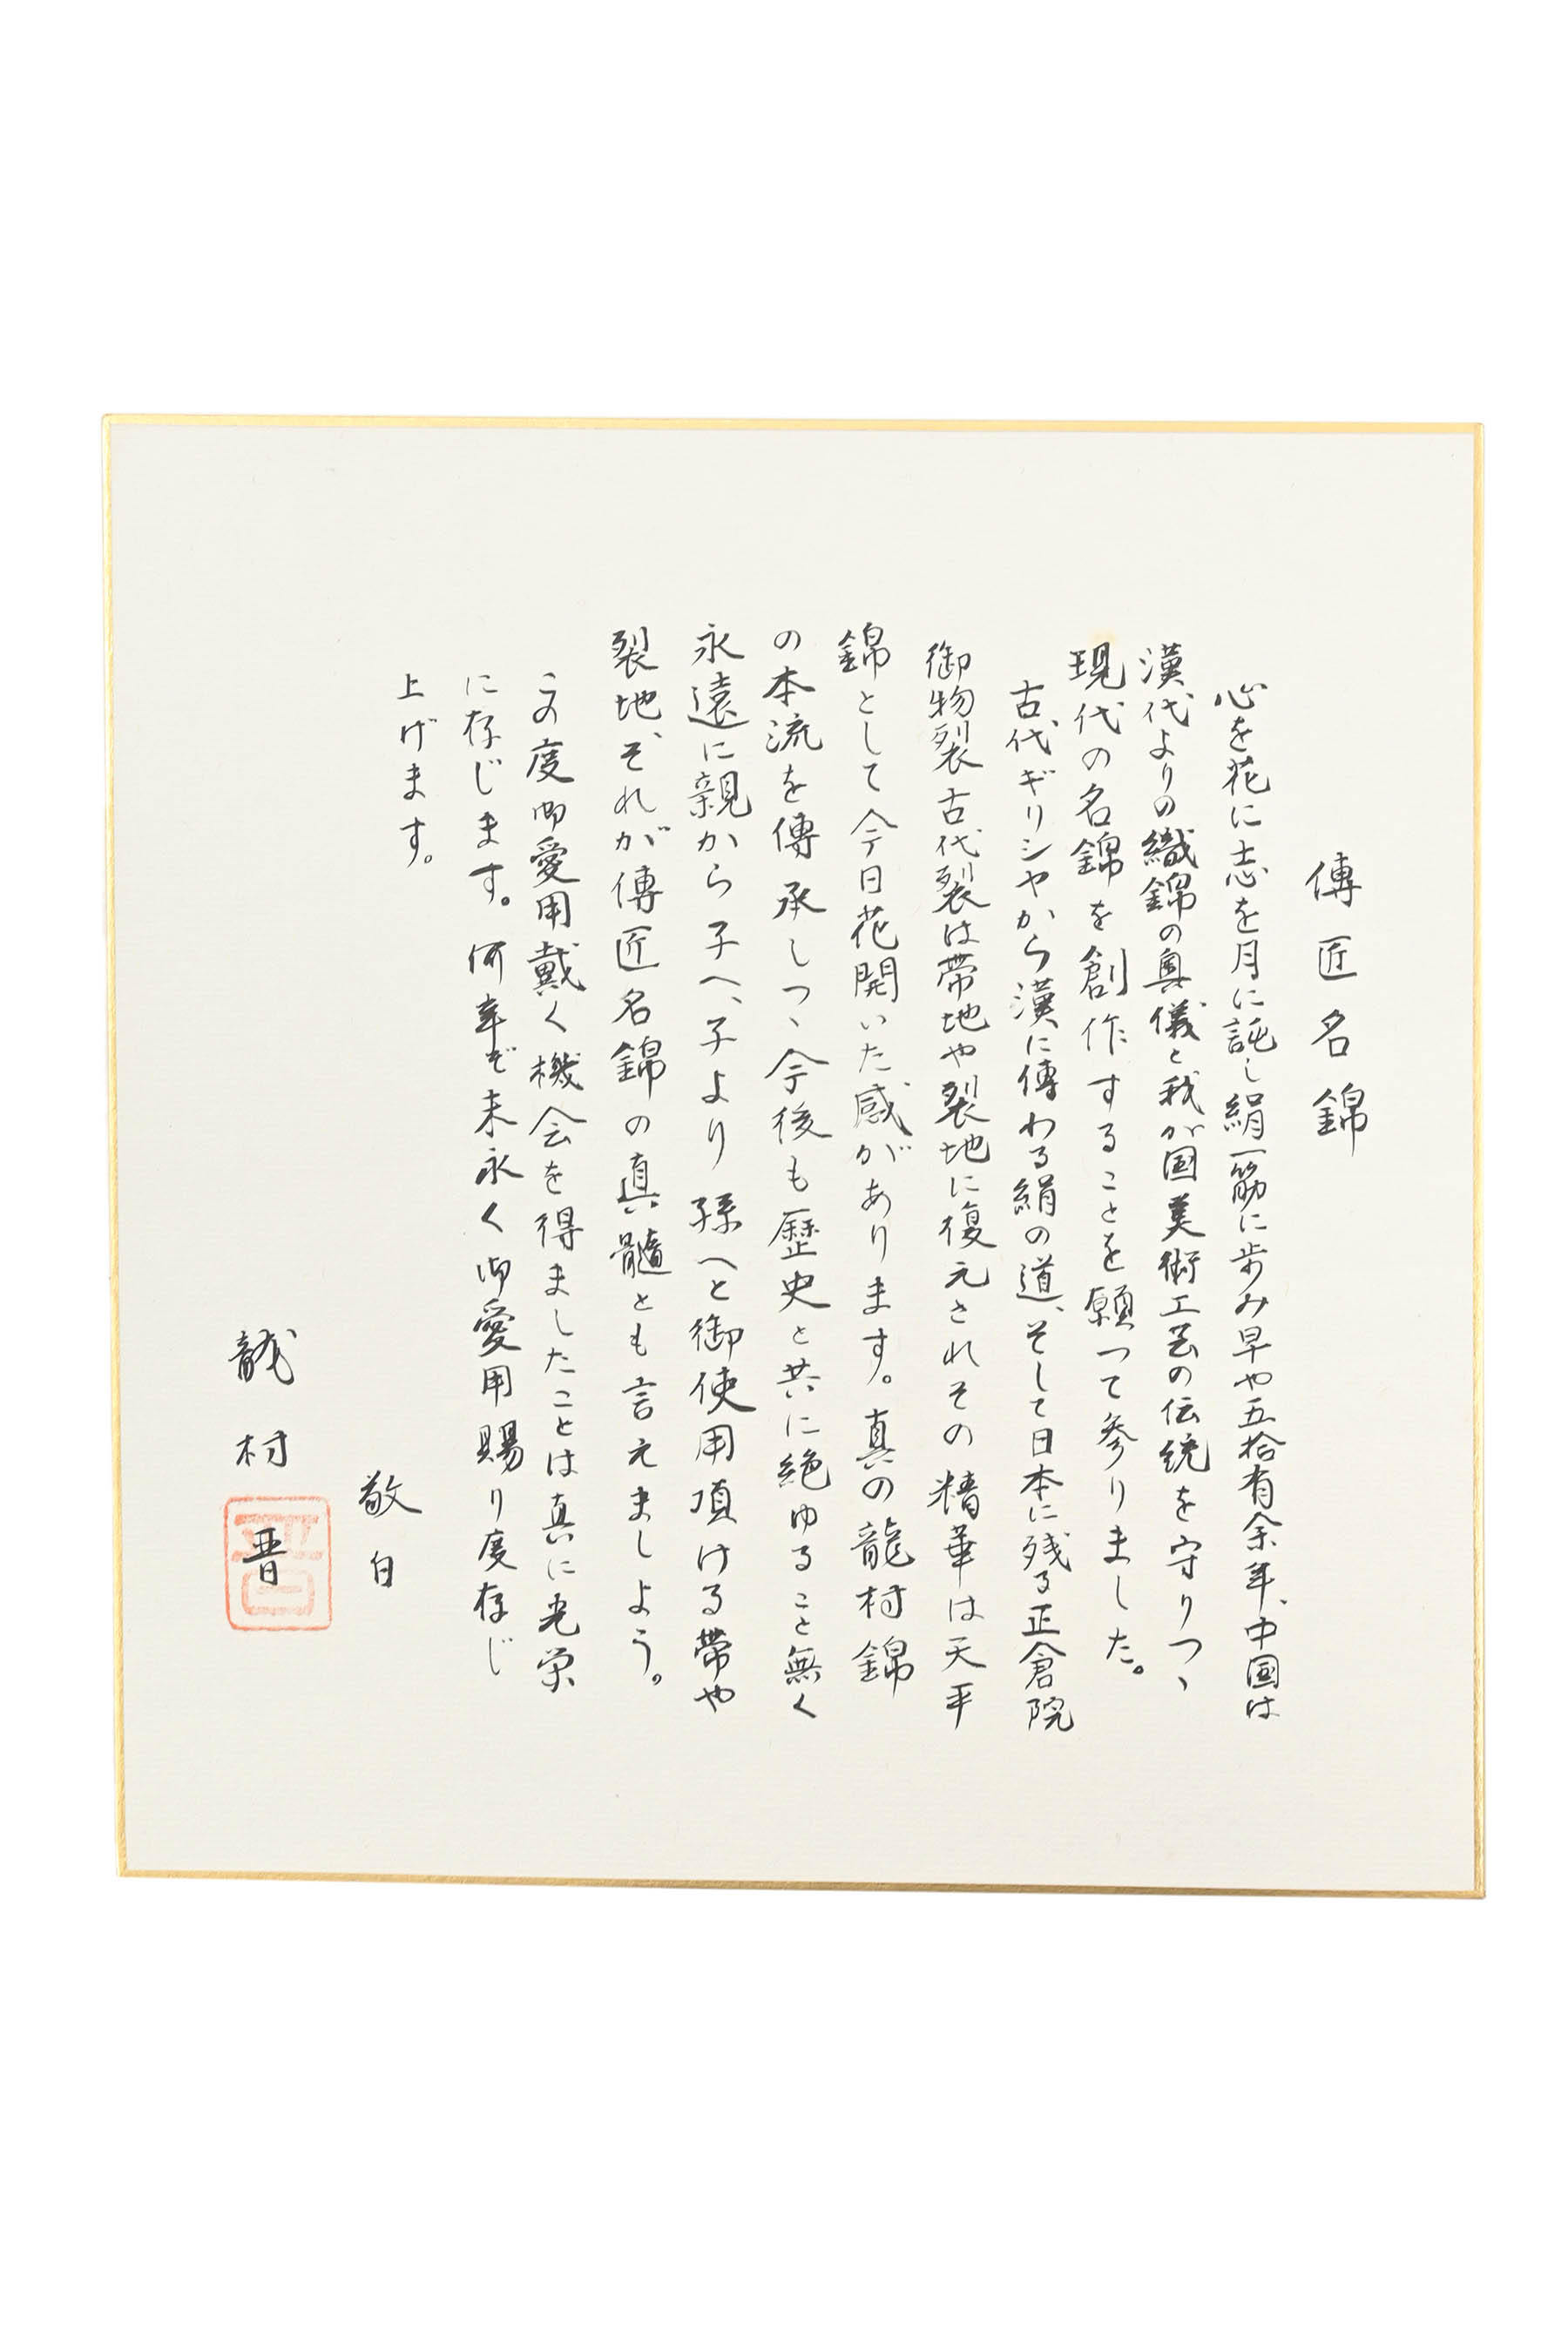 傳匠名錦
心を花に志を月に託し絹一筋に歩み早や五拾有余年、中国は
漢代よりの織錦の奥儀と我が国美術工芸の伝統を守りつゝ
現代の名錦を創作することを願つて参りました。
古代ギリシヤから漢に傳わる絹の道、そして日本に残る正倉院
御物裂古代裂は帯地や裂地に復元されその精華は天平
錦として今日花開いた感があります。真の龍村錦
の本流を傳承しつゝ今後も歴史と共に絶ゆること無く
永遠に親から子へ、子より孫へと御使用頂ける帯や
裂地、それが傳匠名錦の真髄とも言えましよう。
この度御愛用戴く機会を得ましたことは真に光栄
に存じます。何卒ぞ末永く御愛用賜り度存じ
上げます。
敬白
龍村晋